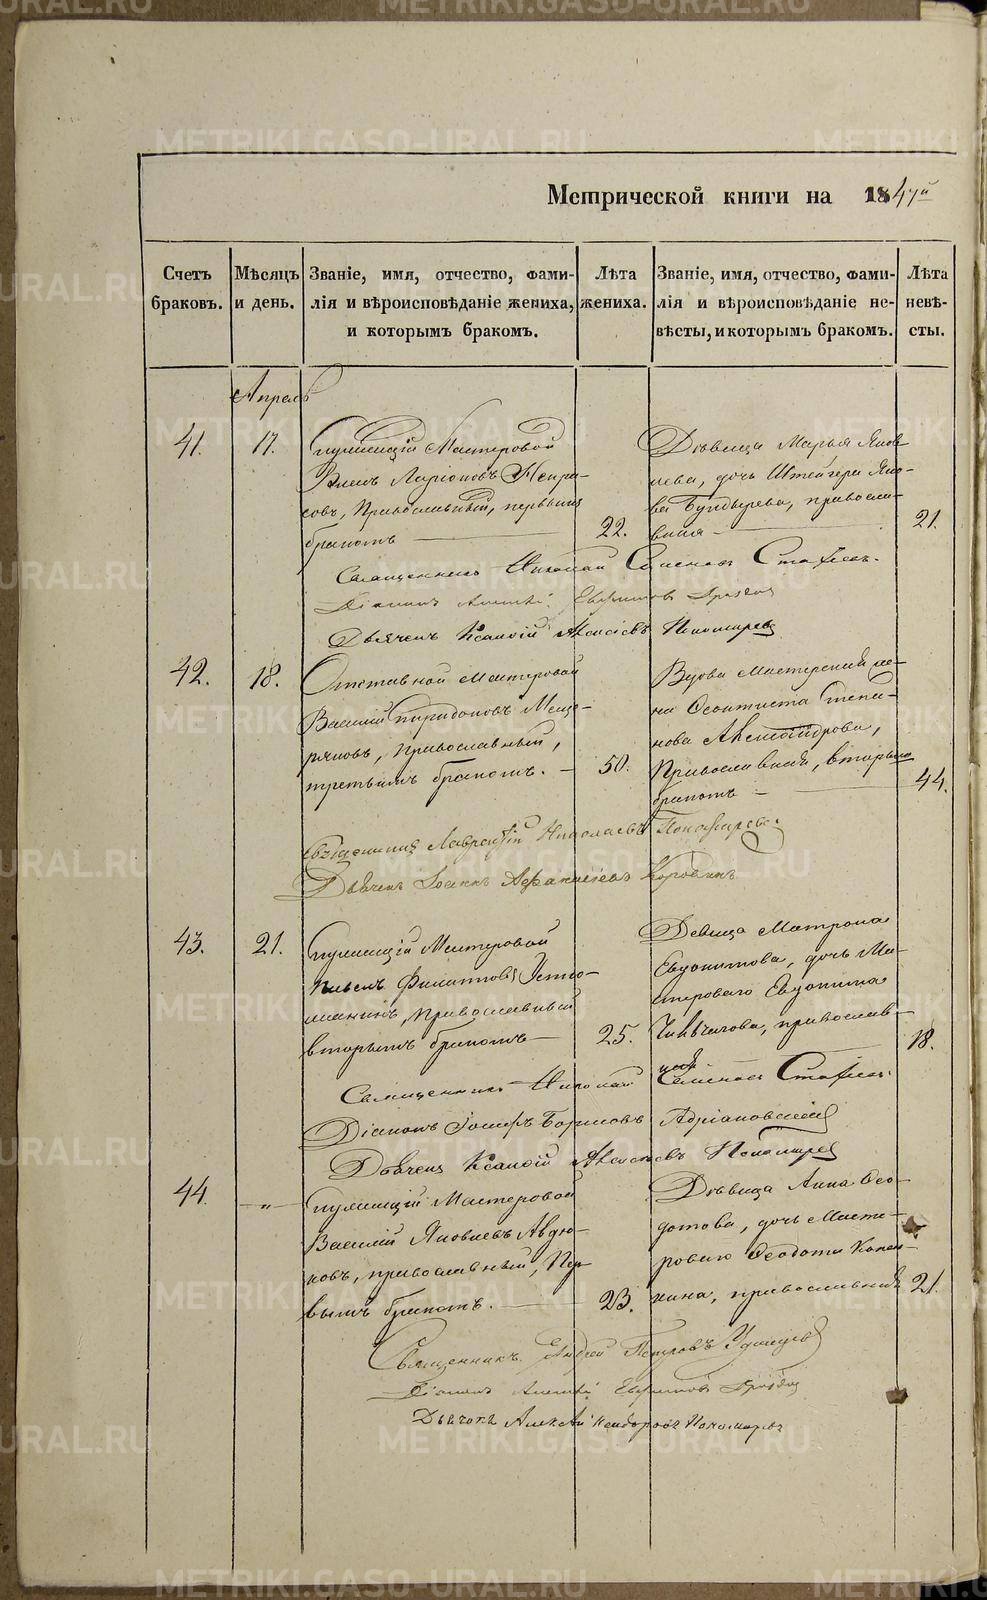 METRIKI.GASO-URAL.RU
Метрической книги на 1847й
Счетъ браковъ.
Мѣсяцъ и день.
Званіе, имя, отчество, фами-
лія и вѣроисповѣданіе жениха,
и которымъ бракомъ.
Лѣта жениха.
Званіе, имя, отчество, фами-
лія и вѣроисповѣданіе не-
вѣсты, и которымъ бракомъ.
Лѣта невѣ-
сты.
Апрель
41.
17.
Служащій Мастеровой
Ларіоновъ Некра-
совъ, Православный, первымъ
бракомъ
22.
Дѣвица Марья Яков-
лева, дочь Штейгера Яко-
ва Бундырева, правосла-
вная
21.
Священникъ Николай Семеновъ
Діаконъ Алексѣй
Дьячекъ Алексіевъ Пономаревъ
42.
18.
Отставной Мастеровой
Василій Спиридоновъ Меще-
ряковъ, православный,
третьимъ бракомъ.
50.
Вдова Мастерская же-
на Степа-
нова Александрова,
Православная, вторымъ
бракомъ
44.
Священникъ Лаврентій Николаевъ Пономаревъ
Дьячекъ Іоаннъ Афанасіевъ Коровинъ
43.
21.
Служащій Мастеровой
Филипповъ Устю-
жанинъ, Православный
вторымъ бракомъ
25.
Девица Матрона
Евдокимова, дочь Ма-
стероваго Евдокима
православ-
ная
18.
Священникъ Николай Семеновъ
Діаконъ Іосифъ Борисовъ Адріановскій
Дьячекъ Алексіевъ Пономаревъ
44.
-„-
Служащій Мастеровой
Василій Яковлевъ Авдю-
ковъ, православный, Пер-
вымъ бракомъ.
23.
Дѣвица Анна Ѳео-
дотова, дочь Масте-
роваго Ѳеодота
православная
21.
Священникъ Андрей Петровъ Удинцевъ
Діаконъ Алексѣй
Дьячекъ Алексѣй Пономаревъ